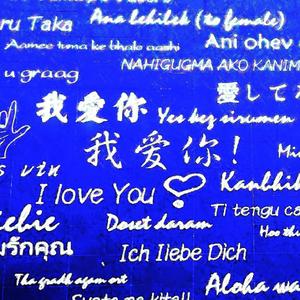 ru Taka
Ana behibek (to female)
Aamee tuma ke bhalo aashi
Ani ohev
NAHIGUGMA AKO KANIM
u graag
愛して
我爱你
Yes kez sirumen
我爱你!
I love You
Kanbhik
Ti tengu ca
ebie
Doset daram
Hoo thi
รักคุณ
Ich liebe Dich
Tha gradh agam ort
Aloha wa